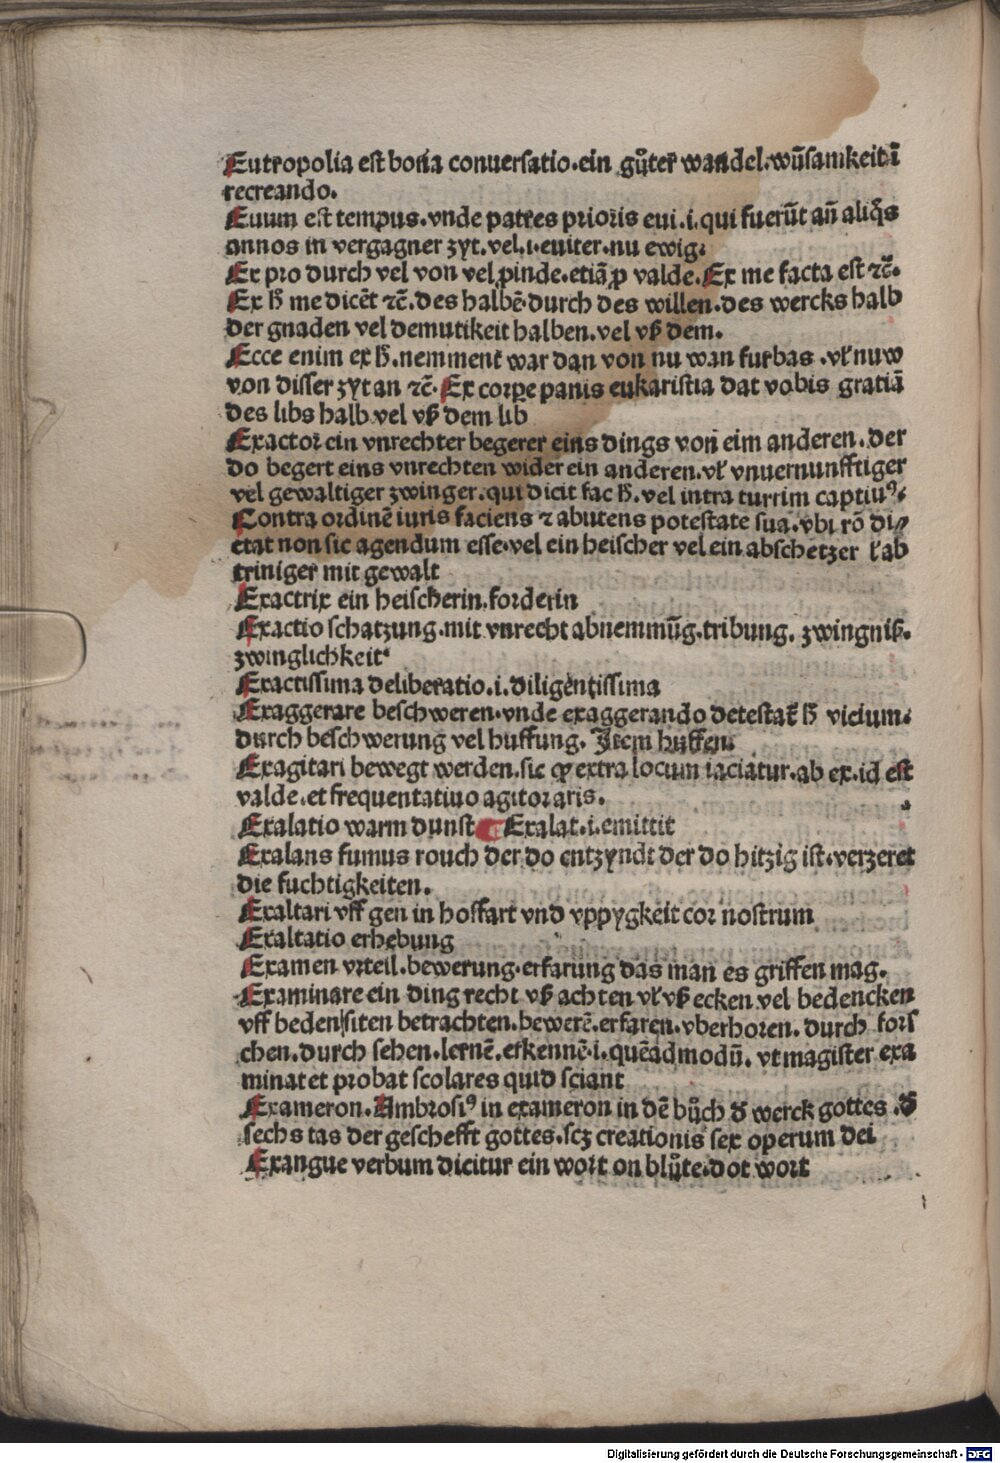 Eutropolia est bona conuersatio.ein gůter wandel.wūsamkeit ī
recreando.
Euum est tempus.vnde patres prioris eui.i.qui fuerūt añ aliq̄s
annos in vergagner zyt.vel.i.euiter.nu ewig.
Ex pro durch vel von vel ꝓinde.etiā ꝓ valde.Ex me facta est ⁊c̄.
Ex h̄ me dicēt ⁊c̄.des halbē.durch des willen.des wercks halb
der gnaden vel demutikeit halben.vel vß dem.
Ecce enim ex h̄.nemment war dan von nu wan furbas.vł nuw
von disser zyt an ⁊c̄.Ex corꝑe panis eukaristia dat vobis gratiā
des libs halb vel vß dem lib
Exactor ein vnrechter begerer eins dings von eim anderen.der
do begert eins vnrechten wider ein anderen.vł vnuernunfftiger
vel gewaltiger zwinger.qui dicit fac h̄.vel intra turrim captiuꝰ.
Contra ordinē iuris faciens ⁊ abutens potestate sua.vbi rō di⸗
ctat non sic agendum esse.vel ein heischer vel ein abschetzer ł ab
triniger mit gewalt
Exactrix ein heischerin.forderin
Exactio schatzung.mit vnrecht abnemmūg.tribung.zwingniß.
zwinglichkeit
Exactissima deliberatio.i.diligentissima
Exaggerare beschweren.vnde exaggerando detestat̄ h̄ vicium.
durch beschwerung vel huffung. Item huffen.
Exagitari bewegt werden.sic ꝙ extra locum iaciatur.ab ex.id est
valde.et frequentatiuo agitor aris.
Exalatio warm dunst Exalat.i.emittit
Exalans fumus rouch der do entzyndt der do hitzig ist.verzeret
die fuchtigkeiten.
Exaltari vff gen in hoffart vnd vppygkeit cor nostrum
Exaltatio erhebung
Examen vrteil.bewerung.erfarung das man es griffen mag.
Examinare ein ding recht vß achten vł vß ecken vel bedencken
vff beden siten betrachten.bewerē.erfaren.vberhoren.durch fors
chen.durch sehen.lernē.erkennē.i.quēadmodū.vt magister exa
minat et probat scolares quid sciant
Exameron.Ambrosiꝰ in exameron in dē bůch d̄ werck gottes.d̄
sechs tas der geschefft gottes.scꝫ creationis sex operum dei
Exangue verbum dicitur ein wort on blůte.dot wort
Digitalisierung gefördert durch die Deutsche Forschungsgemeinschaft - DFG